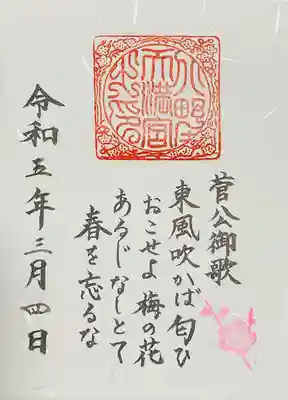 菅公御歌
東風吹かば匂ひ
おこせよ梅の花
あるじなしとて
春を忘るな
令和五年三月四日